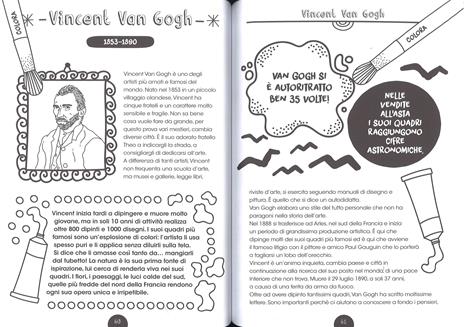 Vincent Van Gogh
1853-1890
COLORA
Vincent Van Gogh è uno degli
artisti più amati e famosi del
mondo. Nato nel 1853 in un piccolo
villaggio olandese, Vincent ha
cinque fratelli e un carattere molto
sensibile e fragile. Non sa bene
cosa vuole fare da grande, per
questo prova vari mestieri, cambia
diverse città. È il suo adorato fratello
Theo a indirizzarlo in strada, a
consigliargli di dedicarsi all'arte.
A differenza di tanti artisti, Vincent
non frequenta una scuola d'arte,
ma musei e gallerie, legge libri,
Vincent inizia tardi a dipingere e muore molto
giovane, ma in soli 10 anni di attività realizza
oltre 800 dipinti e 1000 disegni. I suoi quadri più
famosi sono un'esplosione di colori: l'artista li usa
spesso puri e li applica senza diluirli sulla tela.
Si dice che li amasse così tanto da... mangiarli
dal tubetto! La natura è la sua prima fonte di
ispirazione, lui cerca di renderla viva nei suoi
quadri. I fiori, i paesaggi, le luci calde del sud,
quelle più fredde del nord della Francia rendono
ogni sua opera unica e irripetibile.
60
Vincent Van Gogh
COLORA
VAN GOGH SI
È AUTORITRATTO
BEN 35 VOLTE!
NELLE
VENDITE
ALL'ASTA
I SUOI QUADRI
RAGGIUNGONO
CIFRE
ASTRONOMICHE.
riviste d'arte, si esercita seguendo manuali di disegno e
pittura. È quello che si dice un autodidatta.
Van Gogh elabora uno stile del tutto personale che non ha
paragoni nella storia dell'arte.
Nel 1888 si trasferisce ad Arles, nel sud della Francia e inizia
un periodo di grandissima produzione artistica. È qui che
dipinge molti dei suoi quadri più famosi ed è qui che avviene
il famoso litigio con il pittore e amico Paul Gauguin che lo porterà
a tagliarsi un lobo dell'orecchio.
Vincent è un'anima inquieta, cambia paese e città in
continuazione alla ricerca del suo posto nel mondo: di una pace
interiore che non trova. Muore il 29 luglio 1890, a soli 37 anni,
a causa di una ferita da arma da fuoco.
Oltre ad avere dipinto tantissimi quadri, Van Gogh ha scritto moltissime
lettere. Sono importanti perché ci aiutano a conoscere
61